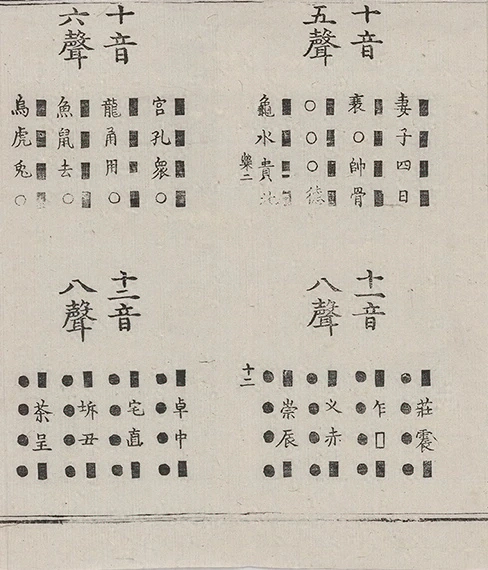 十音
五聲
妻子四日
衰○帥骨
○○○德
龜水貴北
樂二
十音
六聲
宮孔眾○
龍甬用○
魚鼠去○
烏虎兔○
十一音
八聲
莊震
乍□
叉赤
崇辰
十二
十二音
八聲
卓中
宅直
坼丑
茶呈